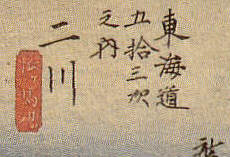 東海道
五拾三次
之内
二川
猿ヶ馬場